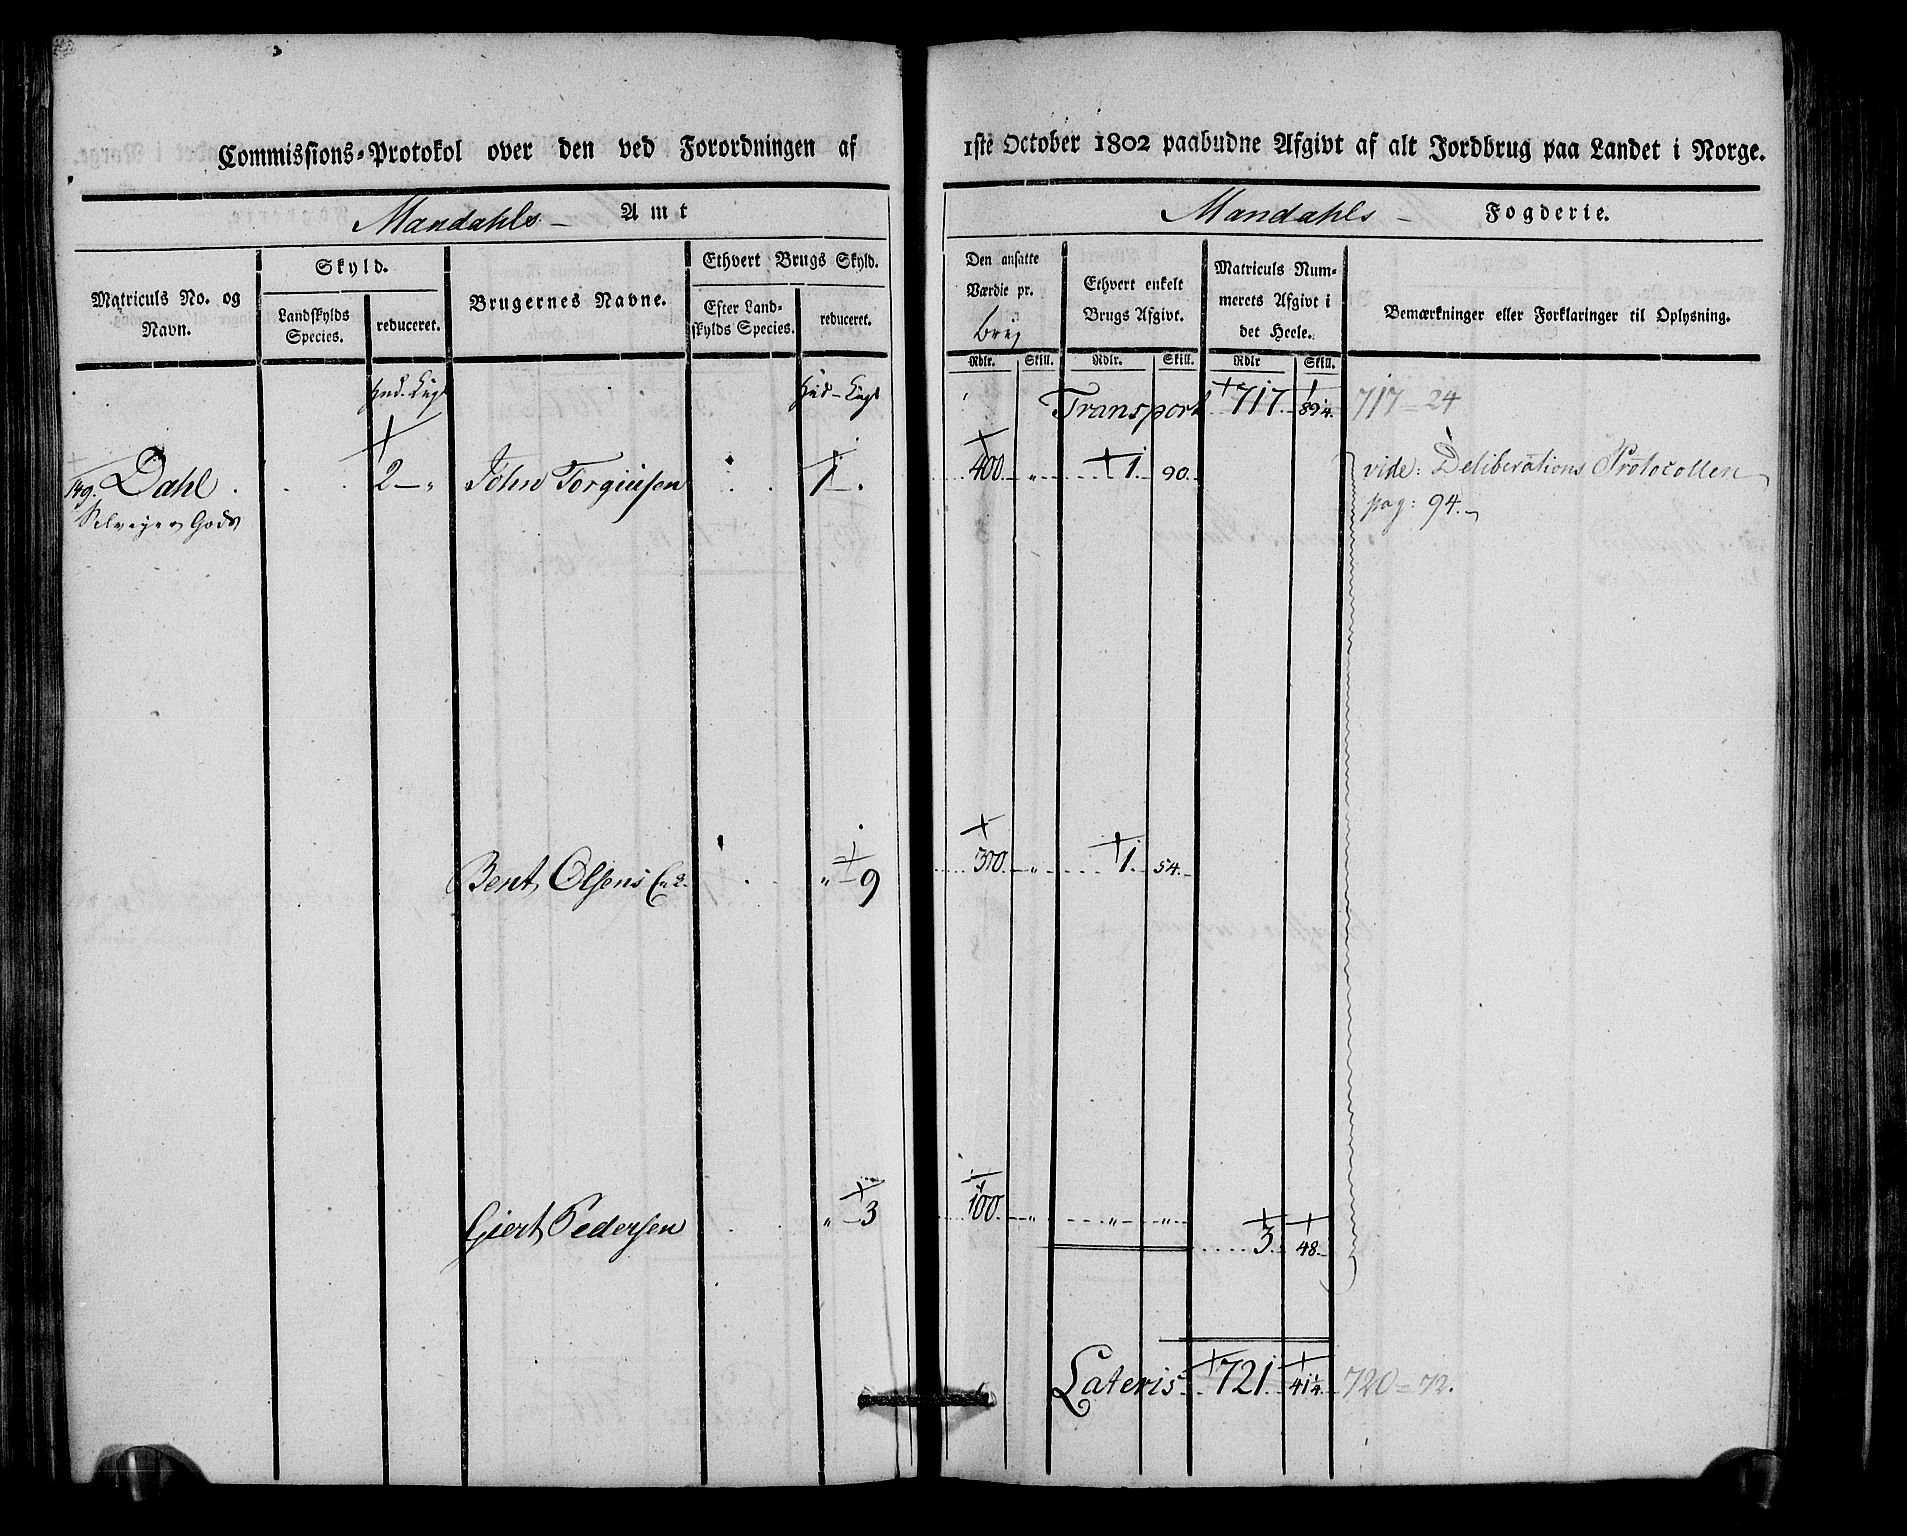 Commissions-Protokol over den ved Forordningen af 1ste October 1802 paabudne Afgivt af alt Jordbrug paa Landet i Norge.
Mandahls Amt
Mandahls Fogderie.
Matriculs No. og Navn.
Skyld.
Landskylds Species.
reduceret.
Brugernes Navne.
Ethvert Brugs Skyld.
Efter Landskylds Species.
reduceret.
Den ansatte Værdie pr. brug
Ethvert enkelt Brugs Afgivt.
Matriculs Nummerets Afgivt i det Heele.
Bemærkninger eller Forklaringer til Oplysning.
Rdlr. Skill. Rdlr. Skill. Rdlr Skill.
Hud. Eng. Hud - Eng. Transport 717. 89¼. 717 = 24
149. Dahl. 2 - " John Torgiusen 1 - . 400. " 1. 90. vide: Deliberations Protocollen
Selveyer Gods pag: 94.
Bent Olsens " - 9 300. " 1. 54.
Giert Pedersen " - 3 100. " " "
3. 48.
Lateris 721. 41¼. 720 = 72.